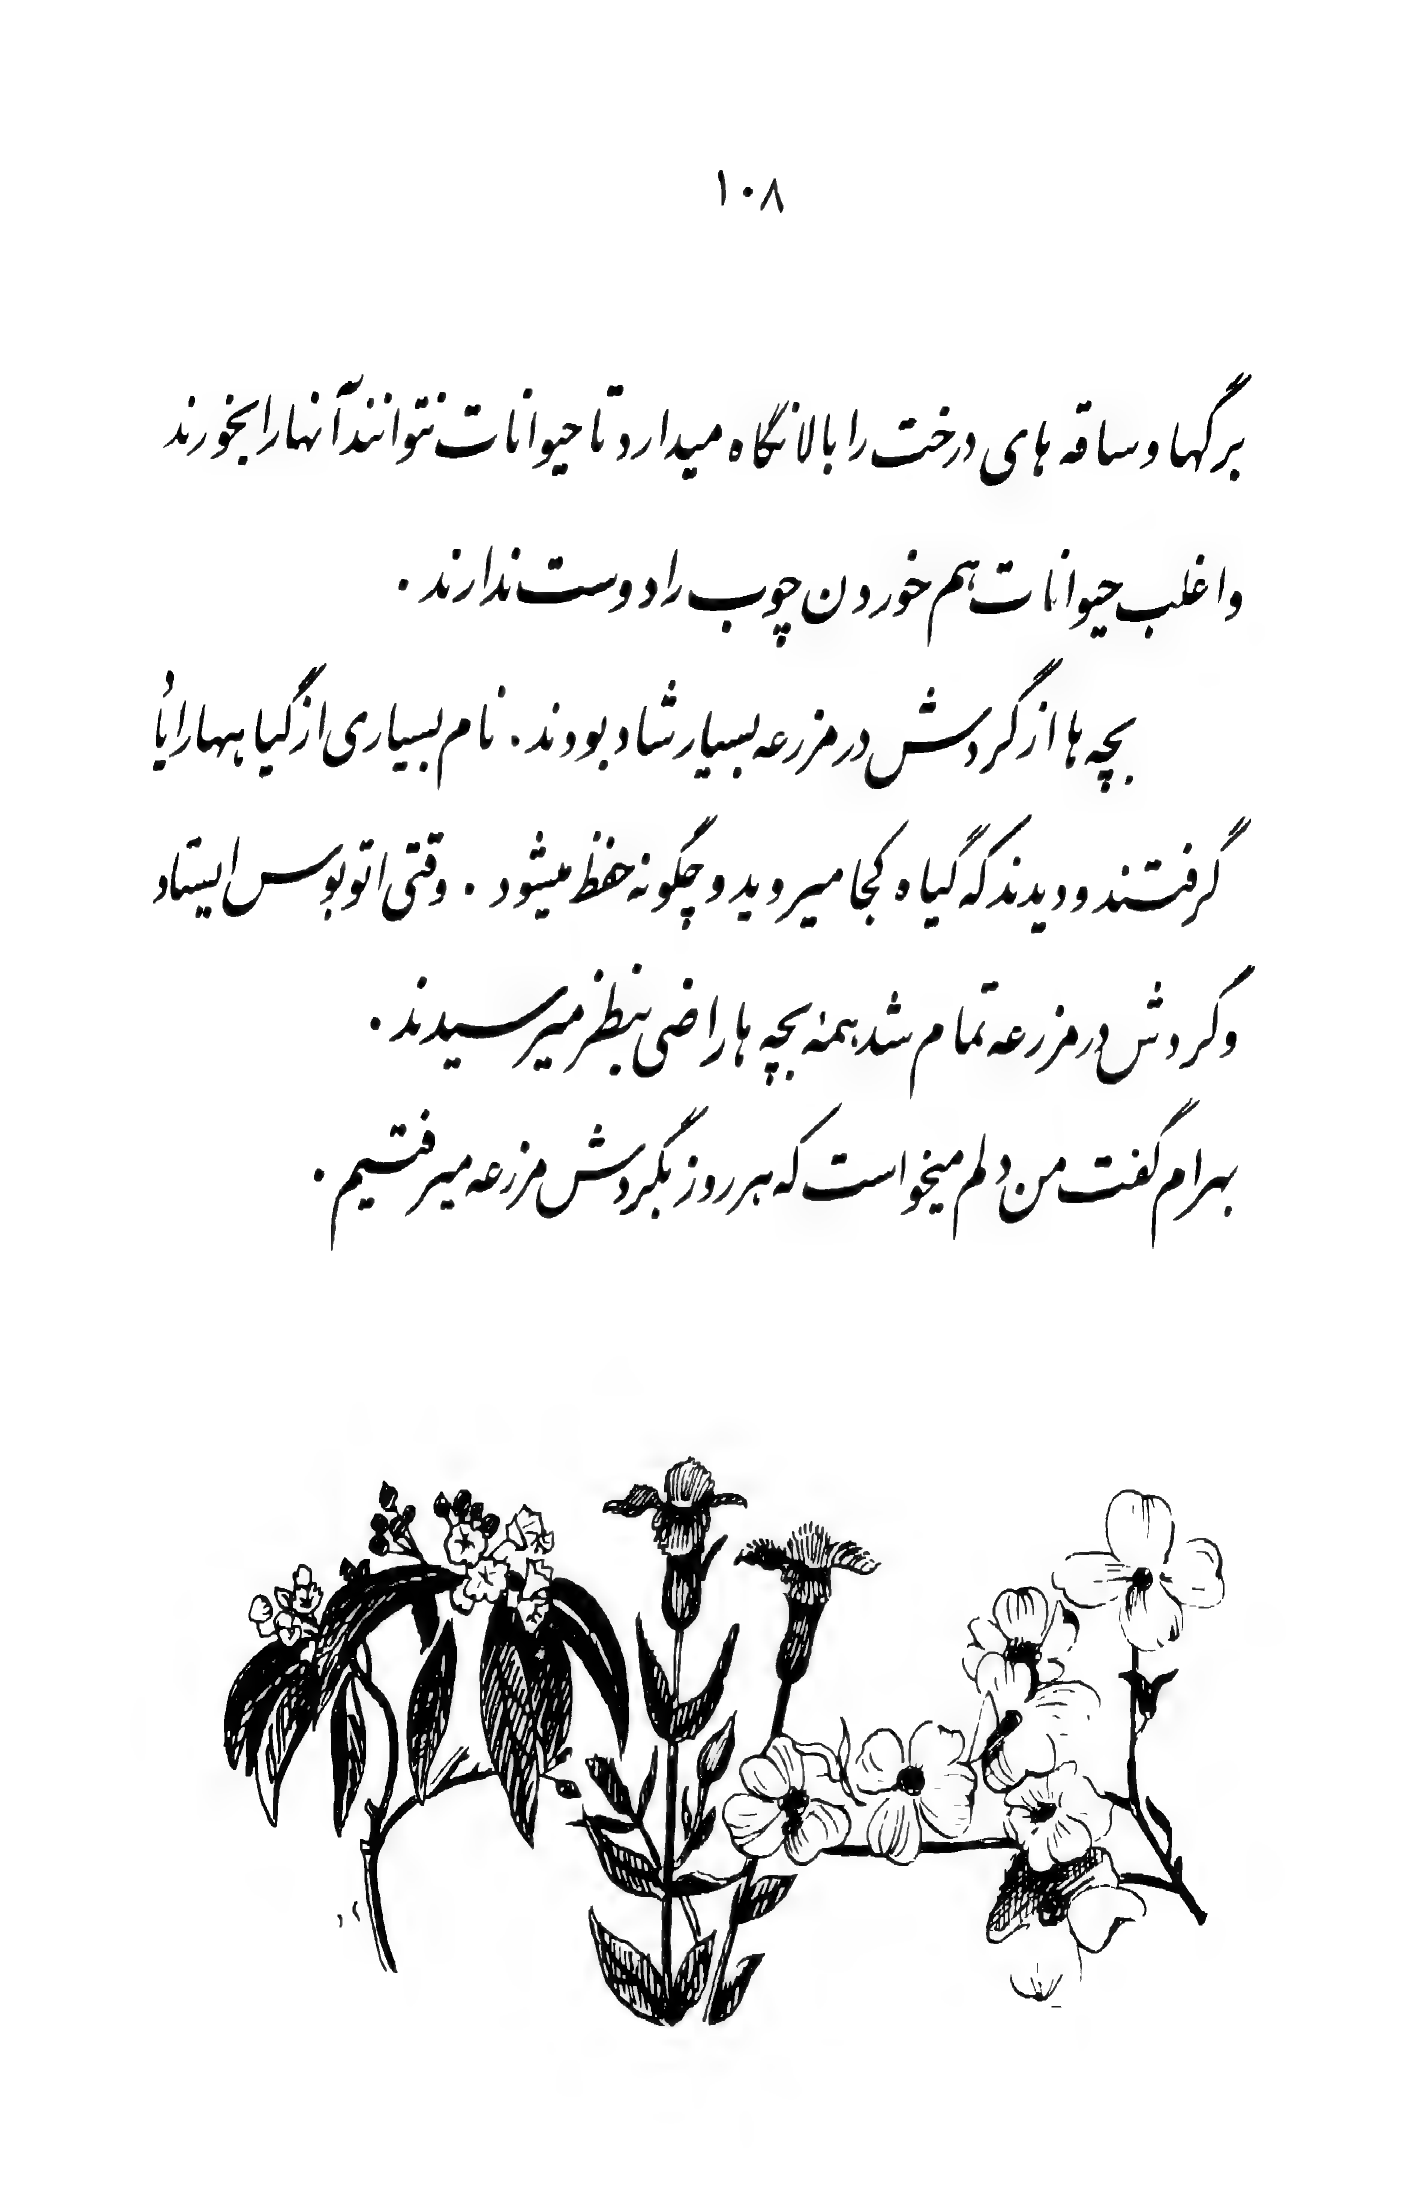 ۱۰۸
برگها و ساقه های درخت را بالا نگاه میدارد تا حیوانات نتوانند آنها را بخورند
و اغلب حیوانات هم خوردن چوب را دوست ندارند .
بچه ها از گردش در مزرعه بسیار شاد بودند . نام بسیاری از گیاهها را یاد
گرفتند و دیدند که گیاه کجا میروید و چگونه حفظ میشود . وقتی اتوبوس ایستاد
و گردش در مزرعه تمام شد همهٔ بچه ها راضی بنظر میرسیدند .
بهرام گفت من دلم میخواست که هر روز بگردش مزرعه میرفتیم .